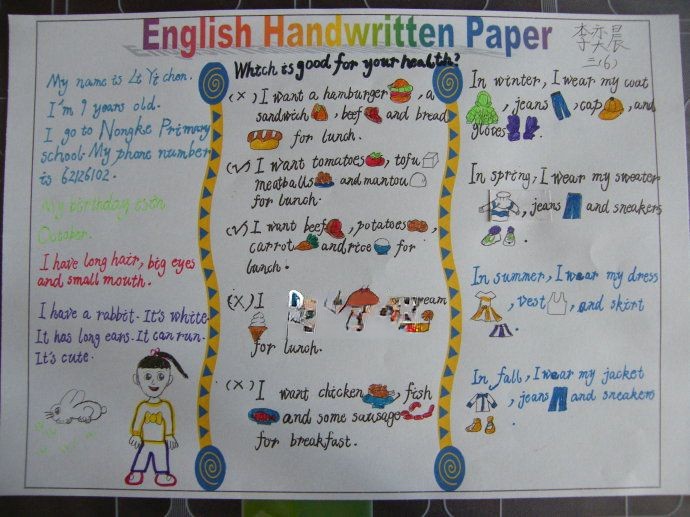 English Handwritten Paper
李奕晨
三(6)
My name is Li Yi chen.
I'm 9 years old.
I go to Nongke Primary
school. My phone number
is 62126102.
My birthday
October.
I have long hair, big eyes
and small mouth.
I have a rabbit. It's white.
It has long ears. It can run.
It's cute.
Which is good for your health?
(×) I want a hamburger , a
sandwich , beef and bread
for lunch.
(√) I want tomatoes , tofu
meatballs and mantou
for lunch.
(√) I want beef , potatoes ,
carrot and rice for
lunch.
(×) I
for lunch.
(×) I want chicken , fish
and some sausage
for breakfast.
In winter, I wear my coat
, jeans , cap , and
gloves .
In spring, I wear my sweater
, jeans and sneakers
.
In summer, I wear my dress
, vest , and skirt
.
In fall, I wear my jacket
, jeans and sneakers
.